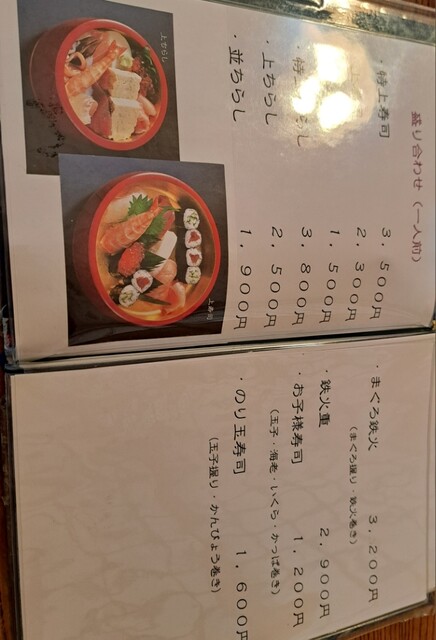 盛り合わせ(一人前)
・特上寿司 3,500円
2,300円
1,500円
3,800円
・上ちらし 2,500円
・並ちらし 1,900円
上ちらし
上寿司
・まぐろ鉄火 3,200円
(まぐろ握り・鉄火巻き)
・鉄火重 2,900円
・お子様寿司 1,200円
(玉子・海老・いくら・かっぱ巻き)
・のり玉寿司 1,600円
(玉子握り・かんぴょう巻き)